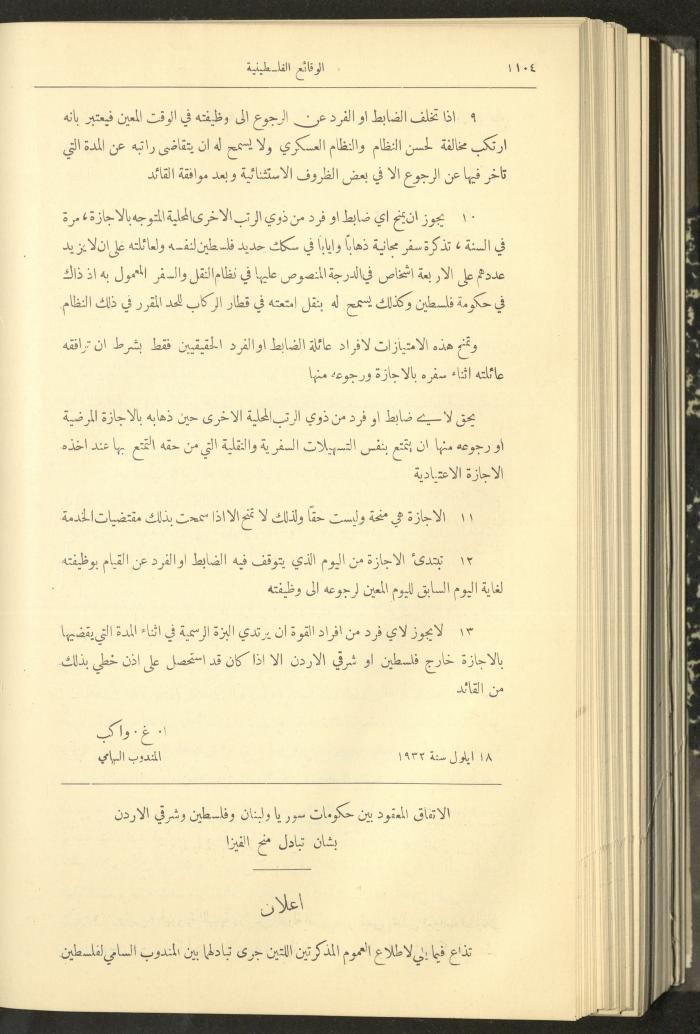 ١١٠٤ الوقائع الفلسطينية
٩ اذا تخلف الضابط او الفرد عن الرجوع الى وظيفته في الوقت المعين فيعتبر بانه
ارتكب مخالفة لحسن النظام والنظام العسكري ولا يسمح له ان يتقاضى راتبه عن المدة التي
تاخر فيها عن الرجوع الا في بعض الظروف الاستثنائية وبعد موافقة القائد
١٠ يجوز ان يمنح اي ضابط او فرد من ذوي الرتب الاخرى المحلية المتوجه بالاجازة، مرة
في السنة، تذكرة سفر مجانية ذهابًا وايابًا في سكك حديد فلسطين لنفسه ولعائلته على ان لا يزيد
عددهم على الاربعة اشخاص في الدرجة المنصوص عليها في نظام النقل والسفر المعمول به اذ ذاك
في حكومة فلسطين وكذلك يسمح له بنقل امتعته في قطار الركاب للحد المقرر في ذلك النظام
وتمنح هذه الامتيازات لافراد عائلة الضابط او الفرد الحقيقيين فقط بشرط ان ترافقه
عائلته اثناء سفره بالاجازة ورجوعه منها
يحق لاي ضابط او فرد من ذوي الرتب المحلية الاخرى حين ذهابه بالاجازة المرضية
او رجوعه منها ان يتمتع بنفس التسهيلات السفرية والنقلية التي من حقه التمتع بها عند اخذه
الاجازة الاعتيادية
١١ الاجازة هي منحة وليست حقًا ولذلك لا تمنح الا اذا سمحت بذلك مقتضيات الخدمة
١٢ تبتدئ الاجازة من اليوم الذي يتوقف فيه الضابط او الفرد عن القيام بوظيفته
لغاية اليوم السابق لليوم المعين لرجوعه الى وظيفته
١٣ لا يجوز لاي فرد من افراد القوة ان يرتدي البزة الرسمية في اثناء المدة التي يقضيها
بالاجازة خارج فلسطين او شرقي الاردن الا اذا كان قد استحصل على اذن خطي بذلك
من القائد
ا. غ. واكب
١٨ ايلول سنة ١٩٣٢ المندوب السامي
الاتفاق المعقود بين حكومات سوريا ولبنان وفلسطين وشرقي الاردن
بشان تبادل منح الفيزا
اعلان
تذاع فيما يلي لاطلاع العموم المذكرتين اللتين جرى تبادلهما بين المندوب السامي لفلسطين